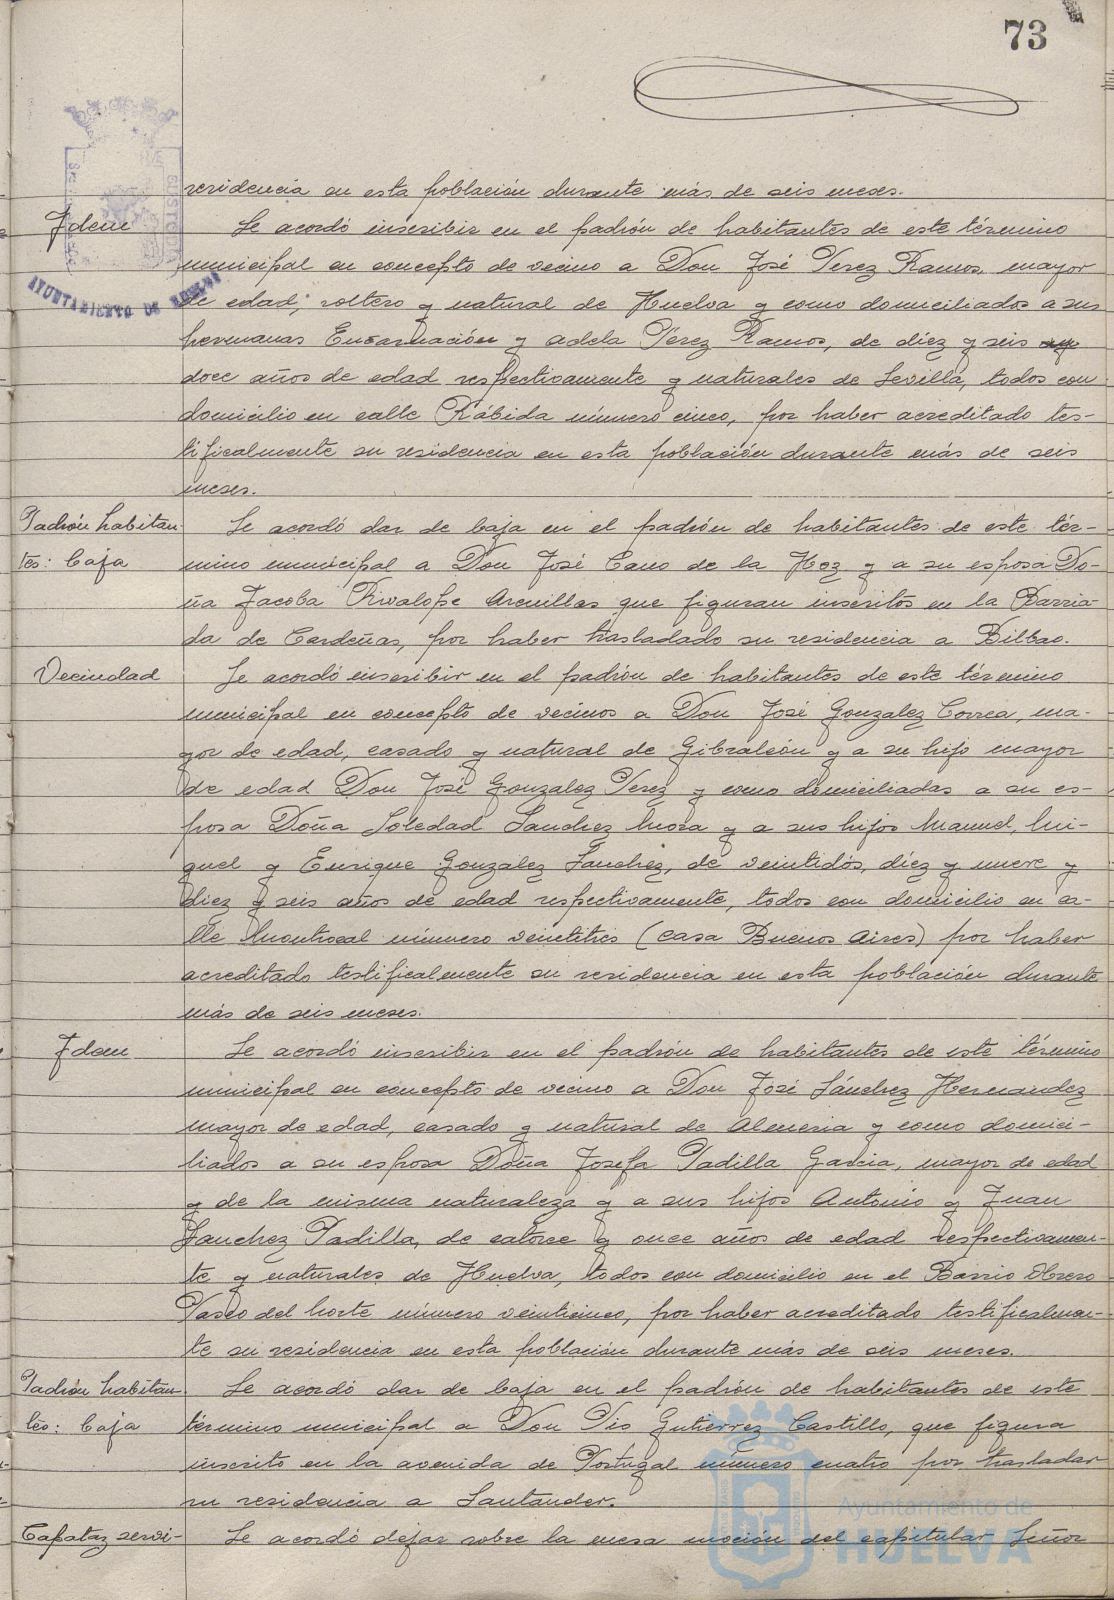 73
residencia en esta población durante más de seis meses.
Idem
Se acordó inscribir en el padrón de habitantes de este término
municipal en concepto de vecino a Don José Perez Ramos, mayor
AYUNTAMIENTO DE HUELVA
de edad, soltero y natural de Huelva y como domiciliados a sus
hermanas Encarnación y adela Pérez Ramos, de diez y seis y
doce años de edad respectivamente y naturales de Sevilla, todos con
domicilio en calle Rábida número cinco, por haber acreditado tes-
tificalmente su residencia en esta población durante más de seis
meses.
Padrón habitan-
tes: baja
Se acordó dar de baja en el padrón de habitantes de este tér-
mino municipal a Don José Cano de la Hoz y a su esposa Do-
ña Jacoba Rivalope Arenillas que figuran inscritos en la Barria-
da de Cardeñas, por haber trasladado su residencia a Bilbao.
Vecindad
Se acordó inscribir en el padrón de habitantes de este término
municipal en concepto de vecinos a Don José Gonzalez Correa, ma-
yor de edad, casado y natural de Gibraleón y a su hijo mayor
de edad Don José Gonzalez Perez y como domiciliadas a su es-
posa Doña Soledad Sanchez Mora y a sus hijos Manuel, Mi-
guel y Enrique Gonzalez Sanchez, de veintidós, diez y nueve y
diez y seis años de edad respectivamente, todos con domicilio en ca-
lle Montrocal número veintitres (casa Buenos Aires) por haber
acreditado testificalmente su residencia en esta población durante
más de seis meses.
Idem
Se acordó inscribir en el padrón de habitantes de este término
municipal en concepto de vecino a Don José Sánchez Hernandez
mayor de edad, casado y natural de Almeria y como domici-
liados a su esposa Doña Josefa Padilla Garcia, mayor de edad
y de la misma naturaleza y a sus hijos Antonio y Juan
Sanchez Padilla, de catorce y once años de edad respectivamen-
te y naturales de Huelva, todos con domicilio en el Barrio Obrero
Paseo del Norte número veinticinco, por haber acreditado testificalmen-
te su residencia en esta población durante más de seis meses.
Padrón habitan-
tes: baja
Se acordó dar de baja en el padrón de habitantes de este
término municipal a Don Pío Gutierrez Castillo, que figura
inscrito en la avenida de Portugal número cuatro por trasladar
su residencia a Santander.
Capataz servi-
Se acordó dejar sobre la mesa moción del capitular Señor
Ayuntamiento de
HUELVA